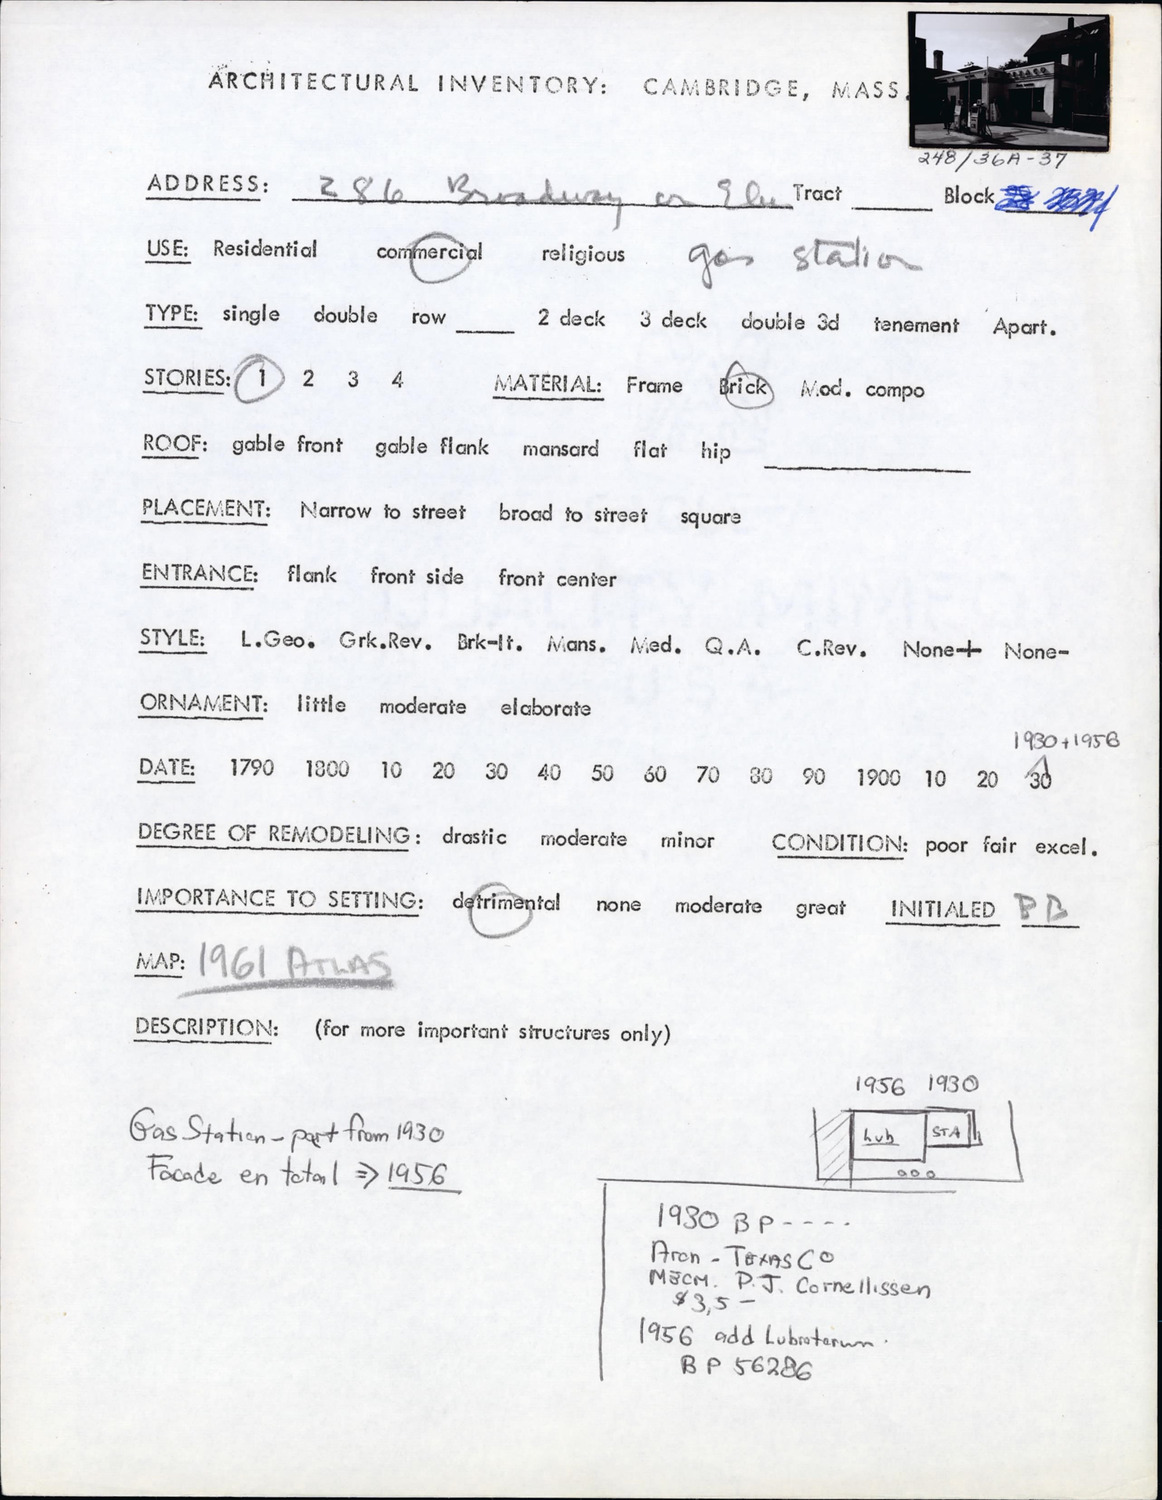 ARCHITECTURAL INVENTORY: CAMBRIDGE, MASS.
248/36A-37
ADDRESS: 286 Broadway or Elm Tract ______ Block
USE: Residential commercial religious gas station
TYPE: single double row ____ 2 deck 3 deck double 3d tenement Apart.
STORIES: 1 2 3 4 MATERIAL: Frame Brick Mod. compo
ROOF: gable front gable flank mansard flat hip ____
PLACEMENT: Narrow to street broad to street square
ENTRANCE: flank front side front center
STYLE: L.Geo. Grk.Rev. Brk-It. Mans. Med. Q.A. C.Rev. None+ None-
ORNAMENT: little moderate elaborate
1930+1956
DATE: 1790 1800 10 20 30 40 50 60 70 80 90 1900 10 20 30
DEGREE OF REMODELING: drastic moderate minor CONDITION: poor fair excel.
IMPORTANCE TO SETTING: detrimental none moderate great INITIALED BB
MAP: 1961 ATLAS
DESCRIPTION: (for more important structures only)
1956 1930
lub STA
Gas Station - part from 1930
Facade en total => 1956
1930 BP ----
Arch - TEXAS CO
MECM. P.J. Cornellissen
$3,5 -
1956 add Lubratorium.
BP 56286